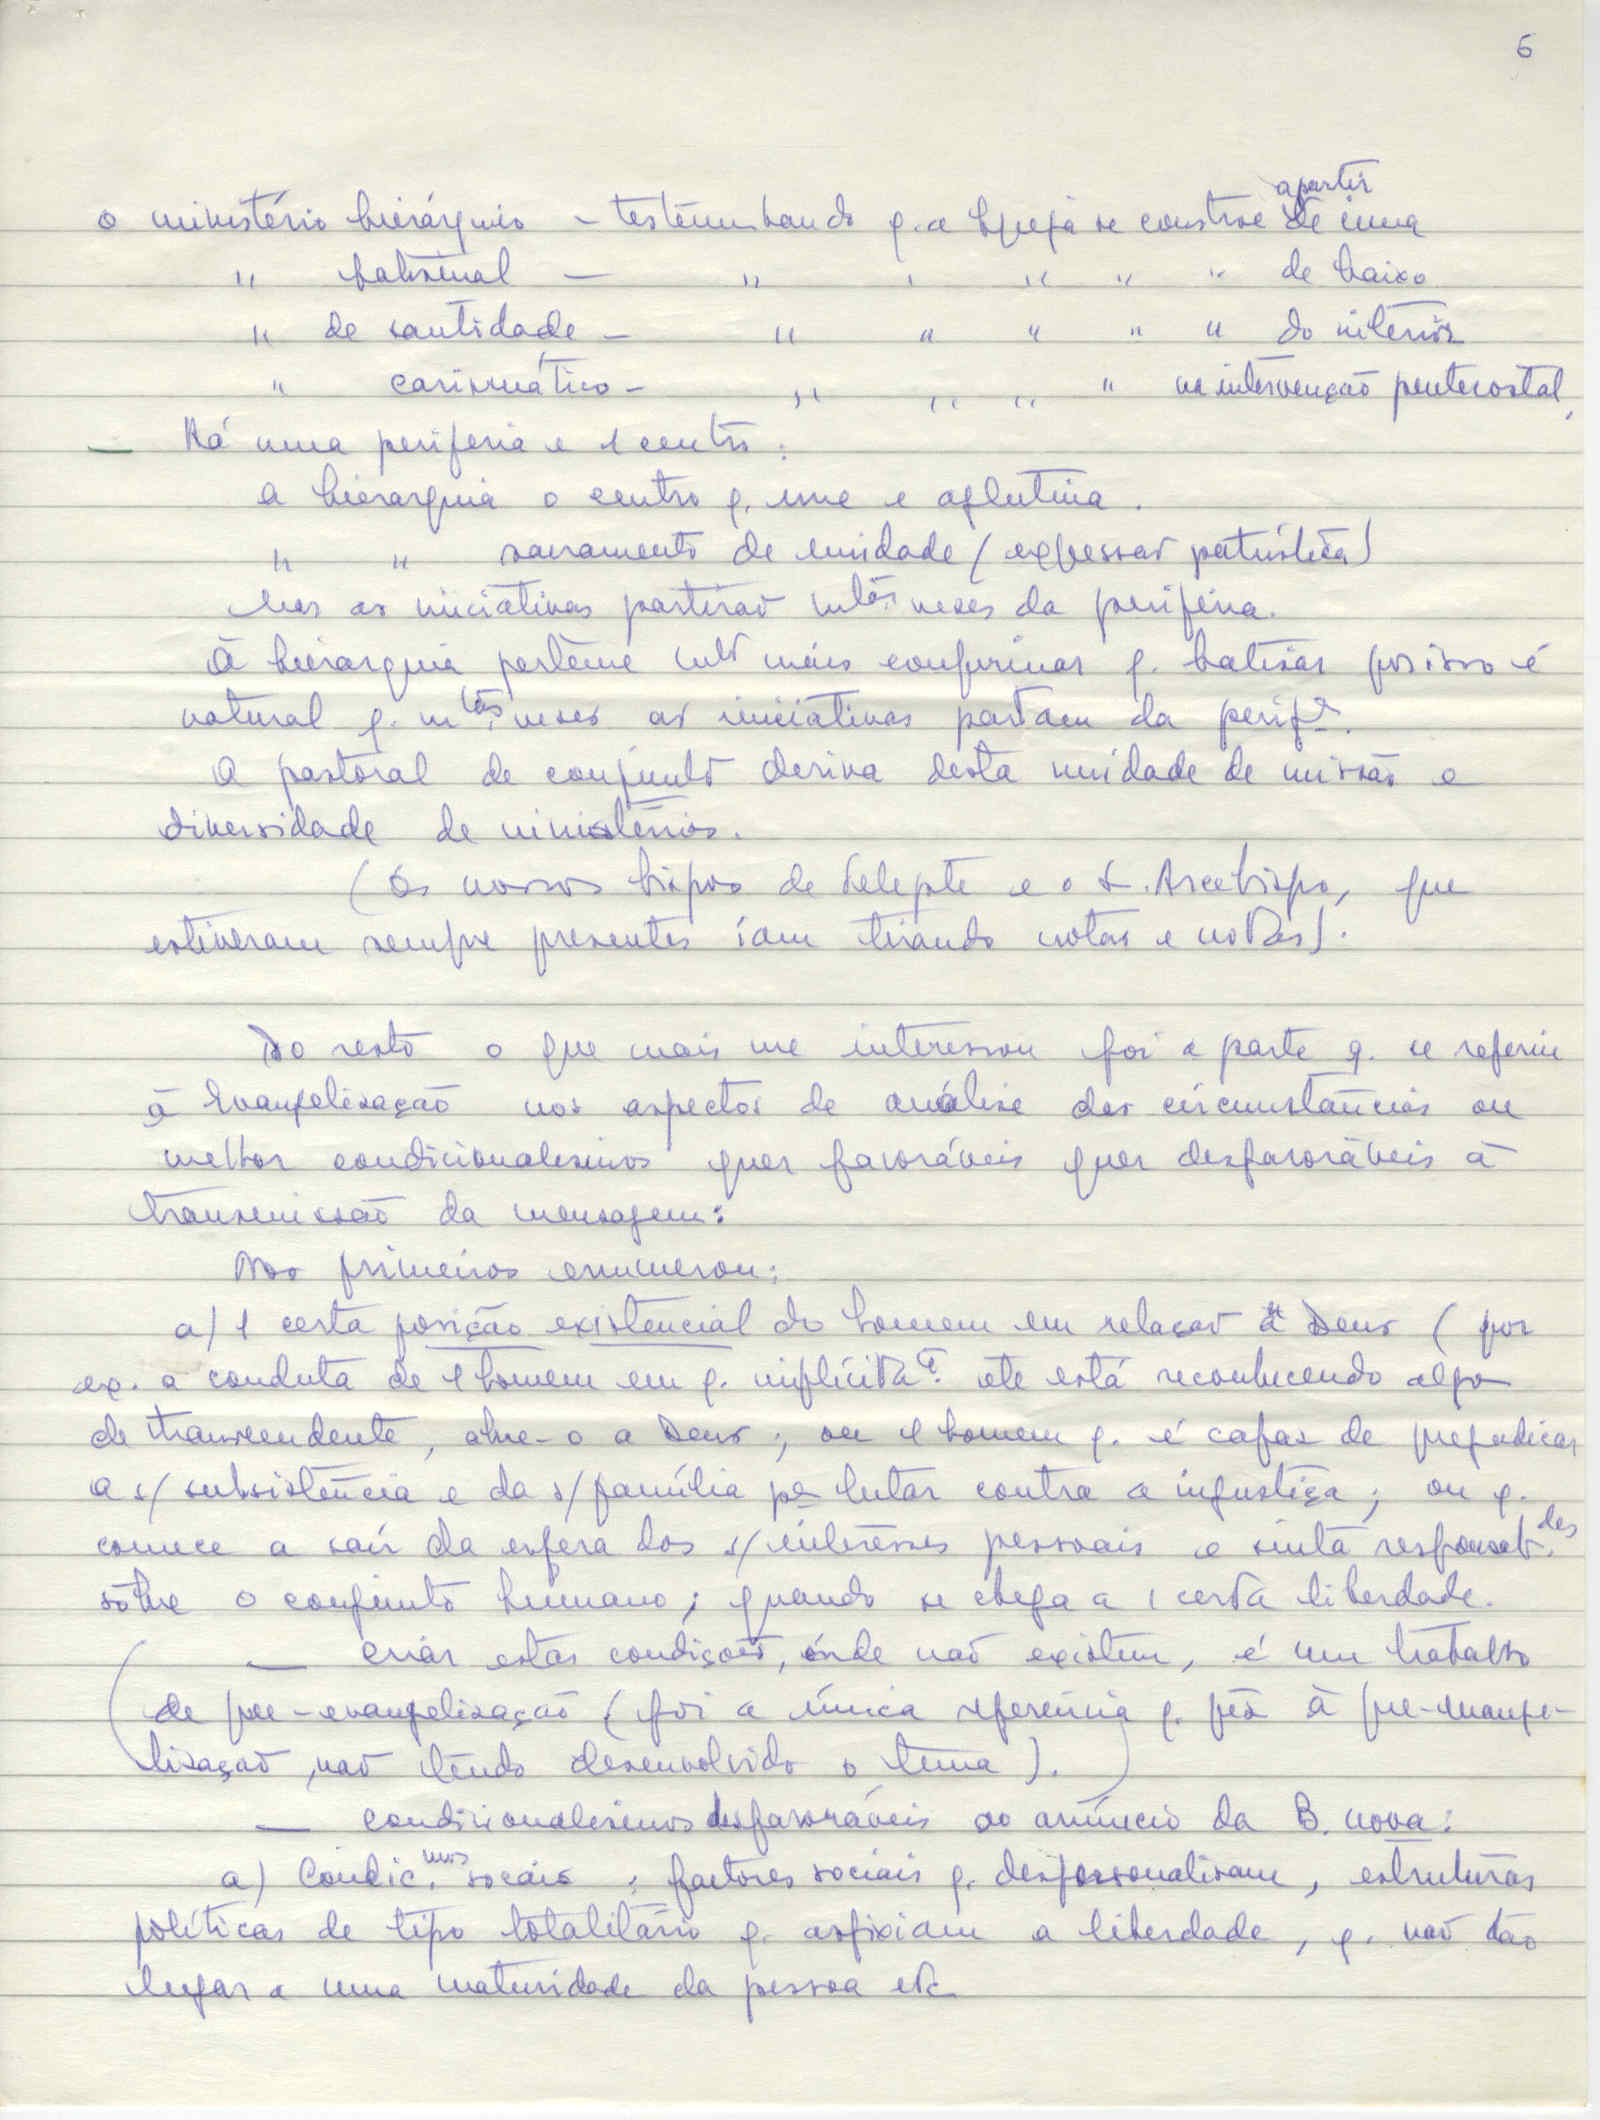 6
apartir
o ministério hierárquio - testemunhando q. a Igreja se constroe de cima
" batismal — " " " " " de baixo
" de santidade - " " " " " do interior
" carismático - " " " " na intervenção pentecostal,
— Há uma periferia e 1 centro:
a hierarquia o centro q. une e aglutina.
" " sacramento de unidade (expressaõ patrística)
Mas as iniciativas partiraõ mtas. vezes da periferia.
À hierarquia pertence mtº mais confirmar q. batisar por isso é
natural q. mtas. vezes as iniciativas partam da perifª.
A pastoral de conjunto deriva desta unidade de missão e
diversidade de ministérios.
(Os nossos bispos de e o S. Arcebispo, que
estiveram sempre presentes iam tirando notas e notas).
Do resto o que mais me interessou foi a parte q. se referiu
à Evangelisação nos aspectos de análise das circunstâncias ou
melhor condicionalismos quer favoráveis quer desfavoráveis à
transmissão da mensagem:
Nos primeiros enumerou:
a) 1 certa posição existencial do homem em relaçaõ a Deus (por
ex. a conduta de 1 homem em q. implícitaᵉ. ele está reconhecendo algo
de transcendente, abre-o a Deus; ou 1 homem q. é capaz de prejudicar
a s/ subsistência e da s/ família pª lutar contra a injustiça; ou q.
comece a saír da esfera dos s/ interesses pessoais e sinta responsab.des
sôbre o conjunto humano; quando se chega a 1 certa liberdade.
— Criar estas condições, onde naõ existem, é um trabalho
de pre-evangelisação (foi a única referência q. fez à pre-evange-
lisaçaõ, naõ tendo desenvolvido o tema).
— Condicionalismos desfavoráveis ao anúncio da B. nova:
a) Condic.mos sociais: factores sociais q. despersonalisam, estruturas
políticas de tipo totalitário q. asfixiam a liberdade, q. naõ dão
lugar a uma maturidade da pessoa etc